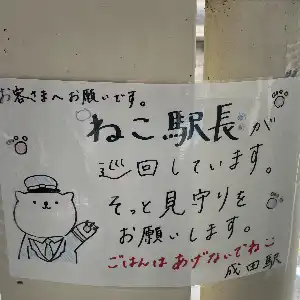 お客さまへお願いです。
ねこ駅長が
巡回しています。
そっと見守りを
お願いします。
ごはんはあげないでねこ
成田駅